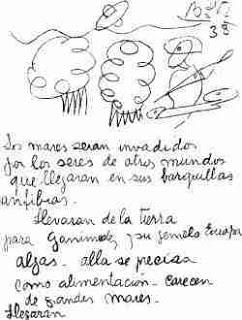 B.S.P.
38
Los mares seran invadidos
por los seres de otros mundos
que llegaran en sus barquillas
anfibias.
Llevaran de la tierra
para Ganimedes y su gemelo Europa
algas. alla se precisa
como alimentación. carecen
de grandes mares.
Llegaran